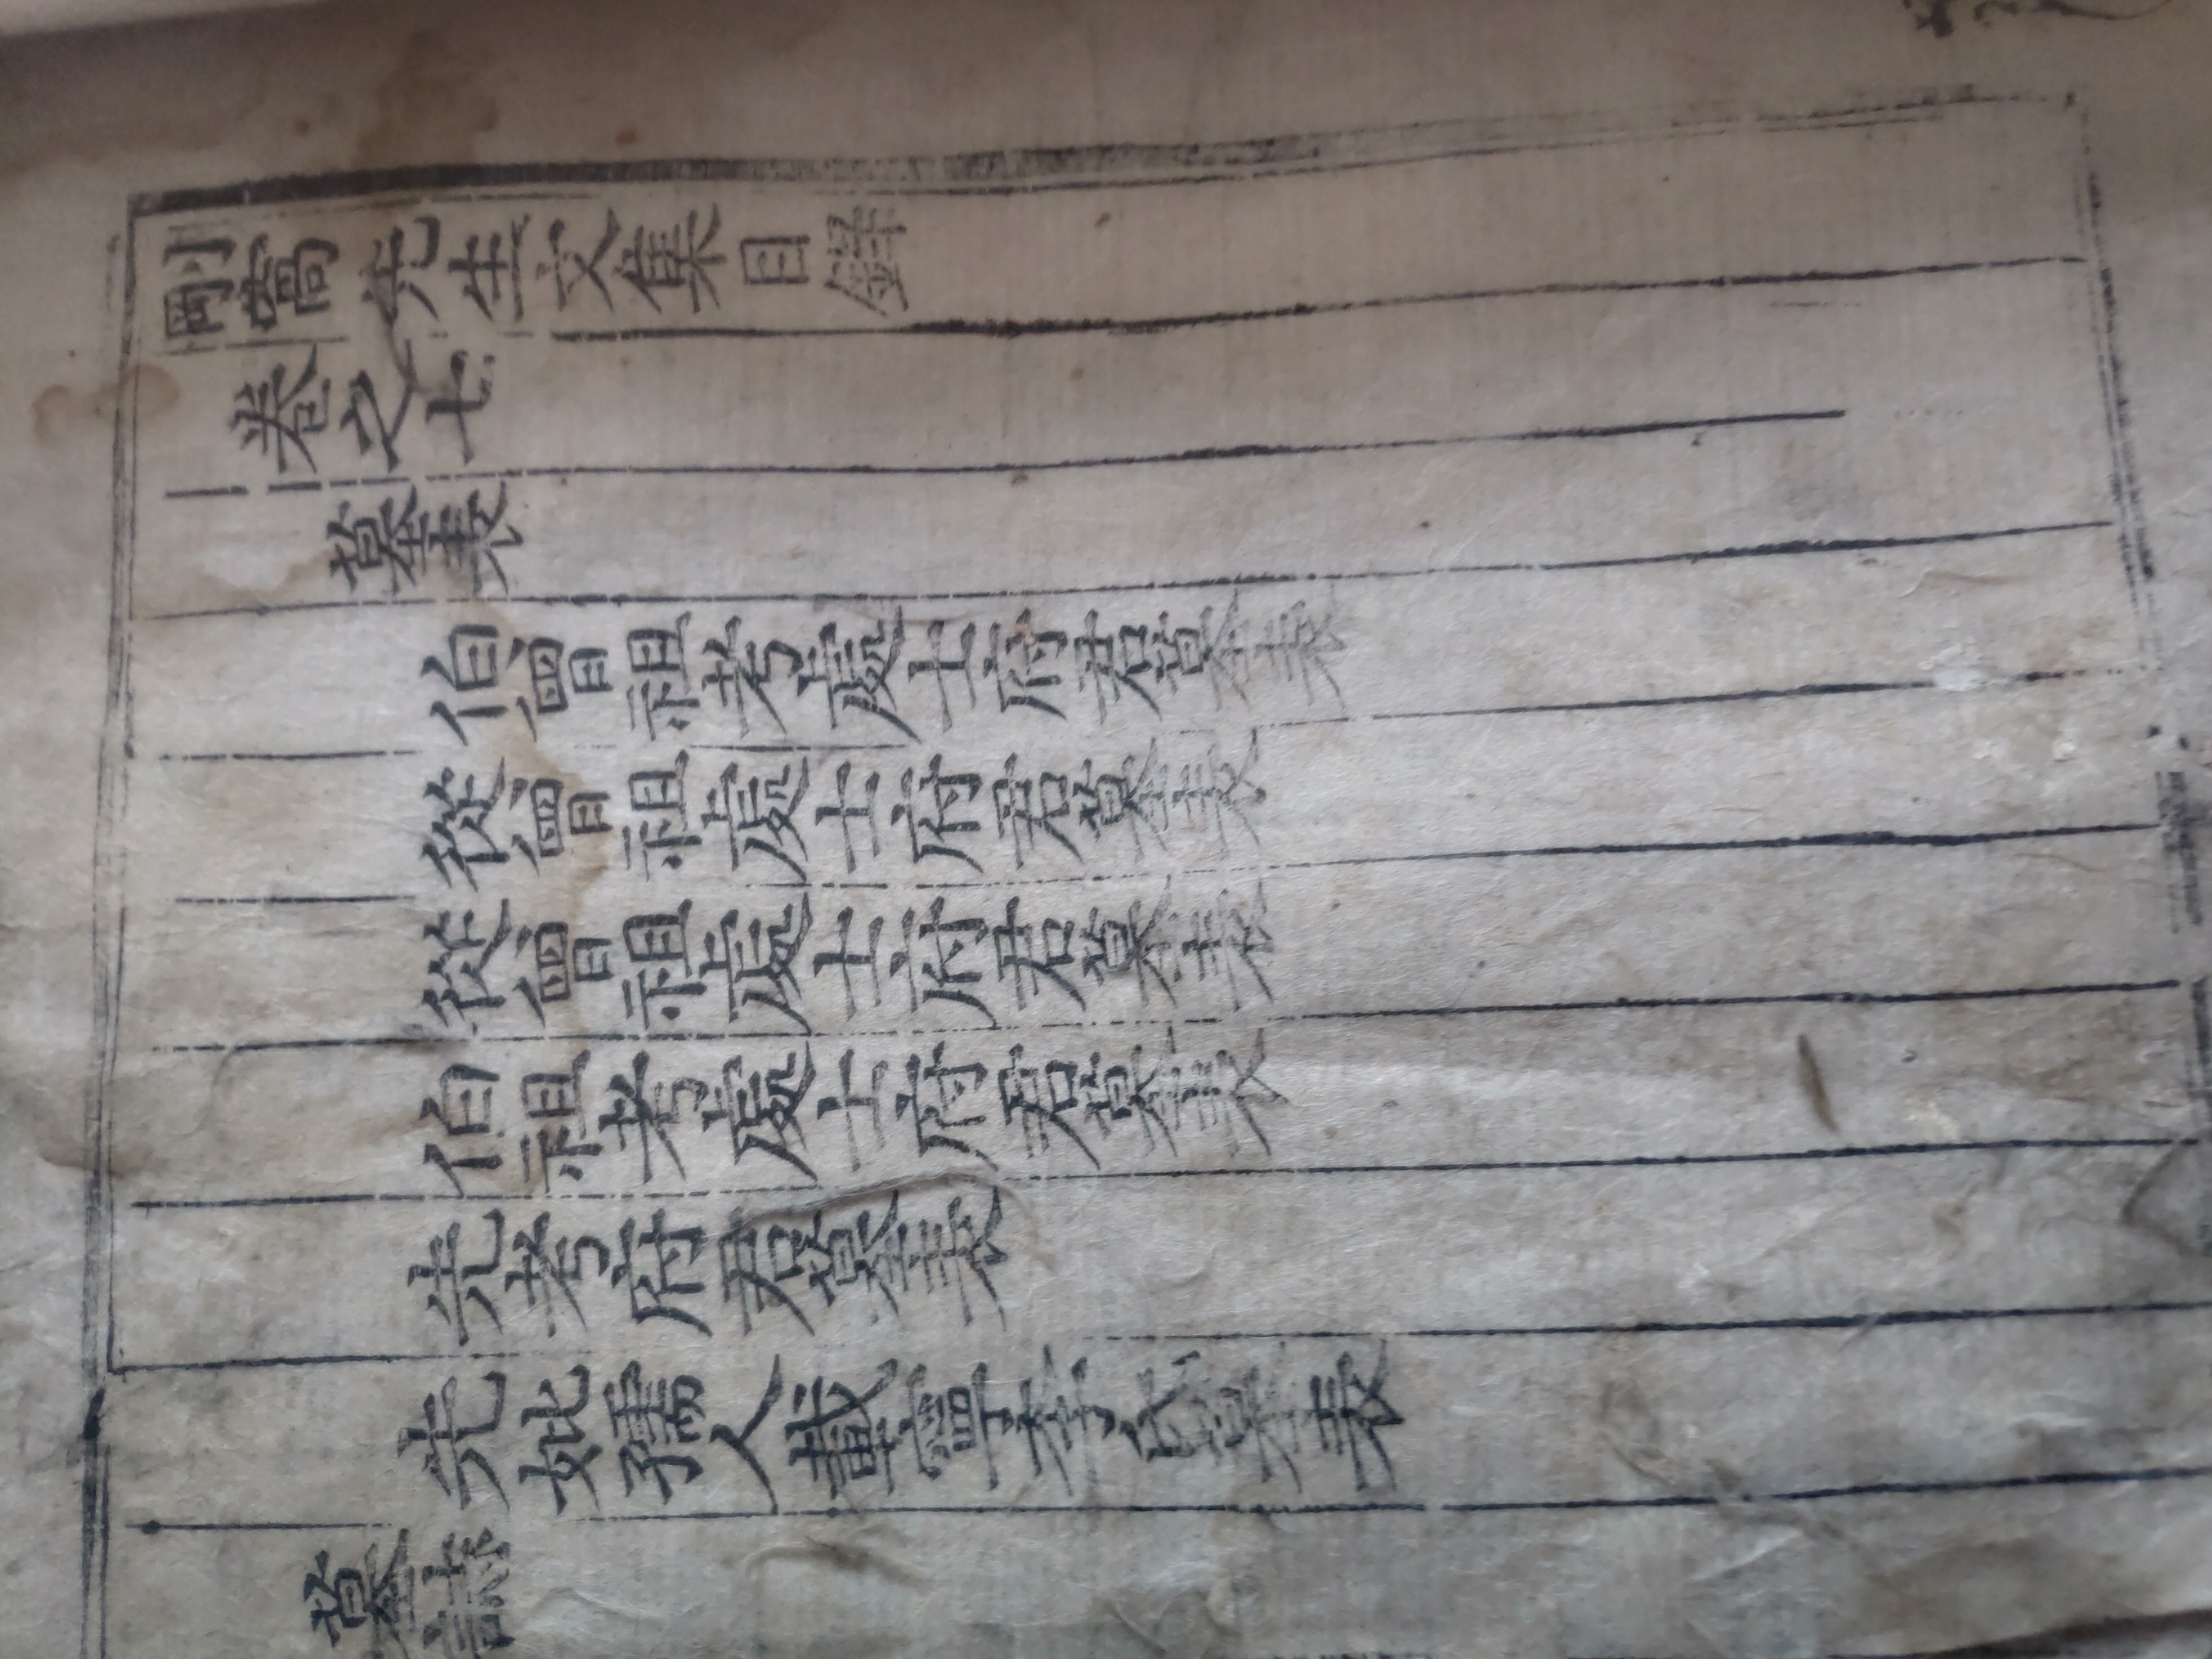 剛窩先生文集目錄
卷之七
墓表
伯曾祖考處士府君墓表
從曾祖處士府君墓表
從曾祖處士府君墓表
伯祖考處士府君墓表
先考府君墓表
先妣孺人載寧李氏墓表
墓誌